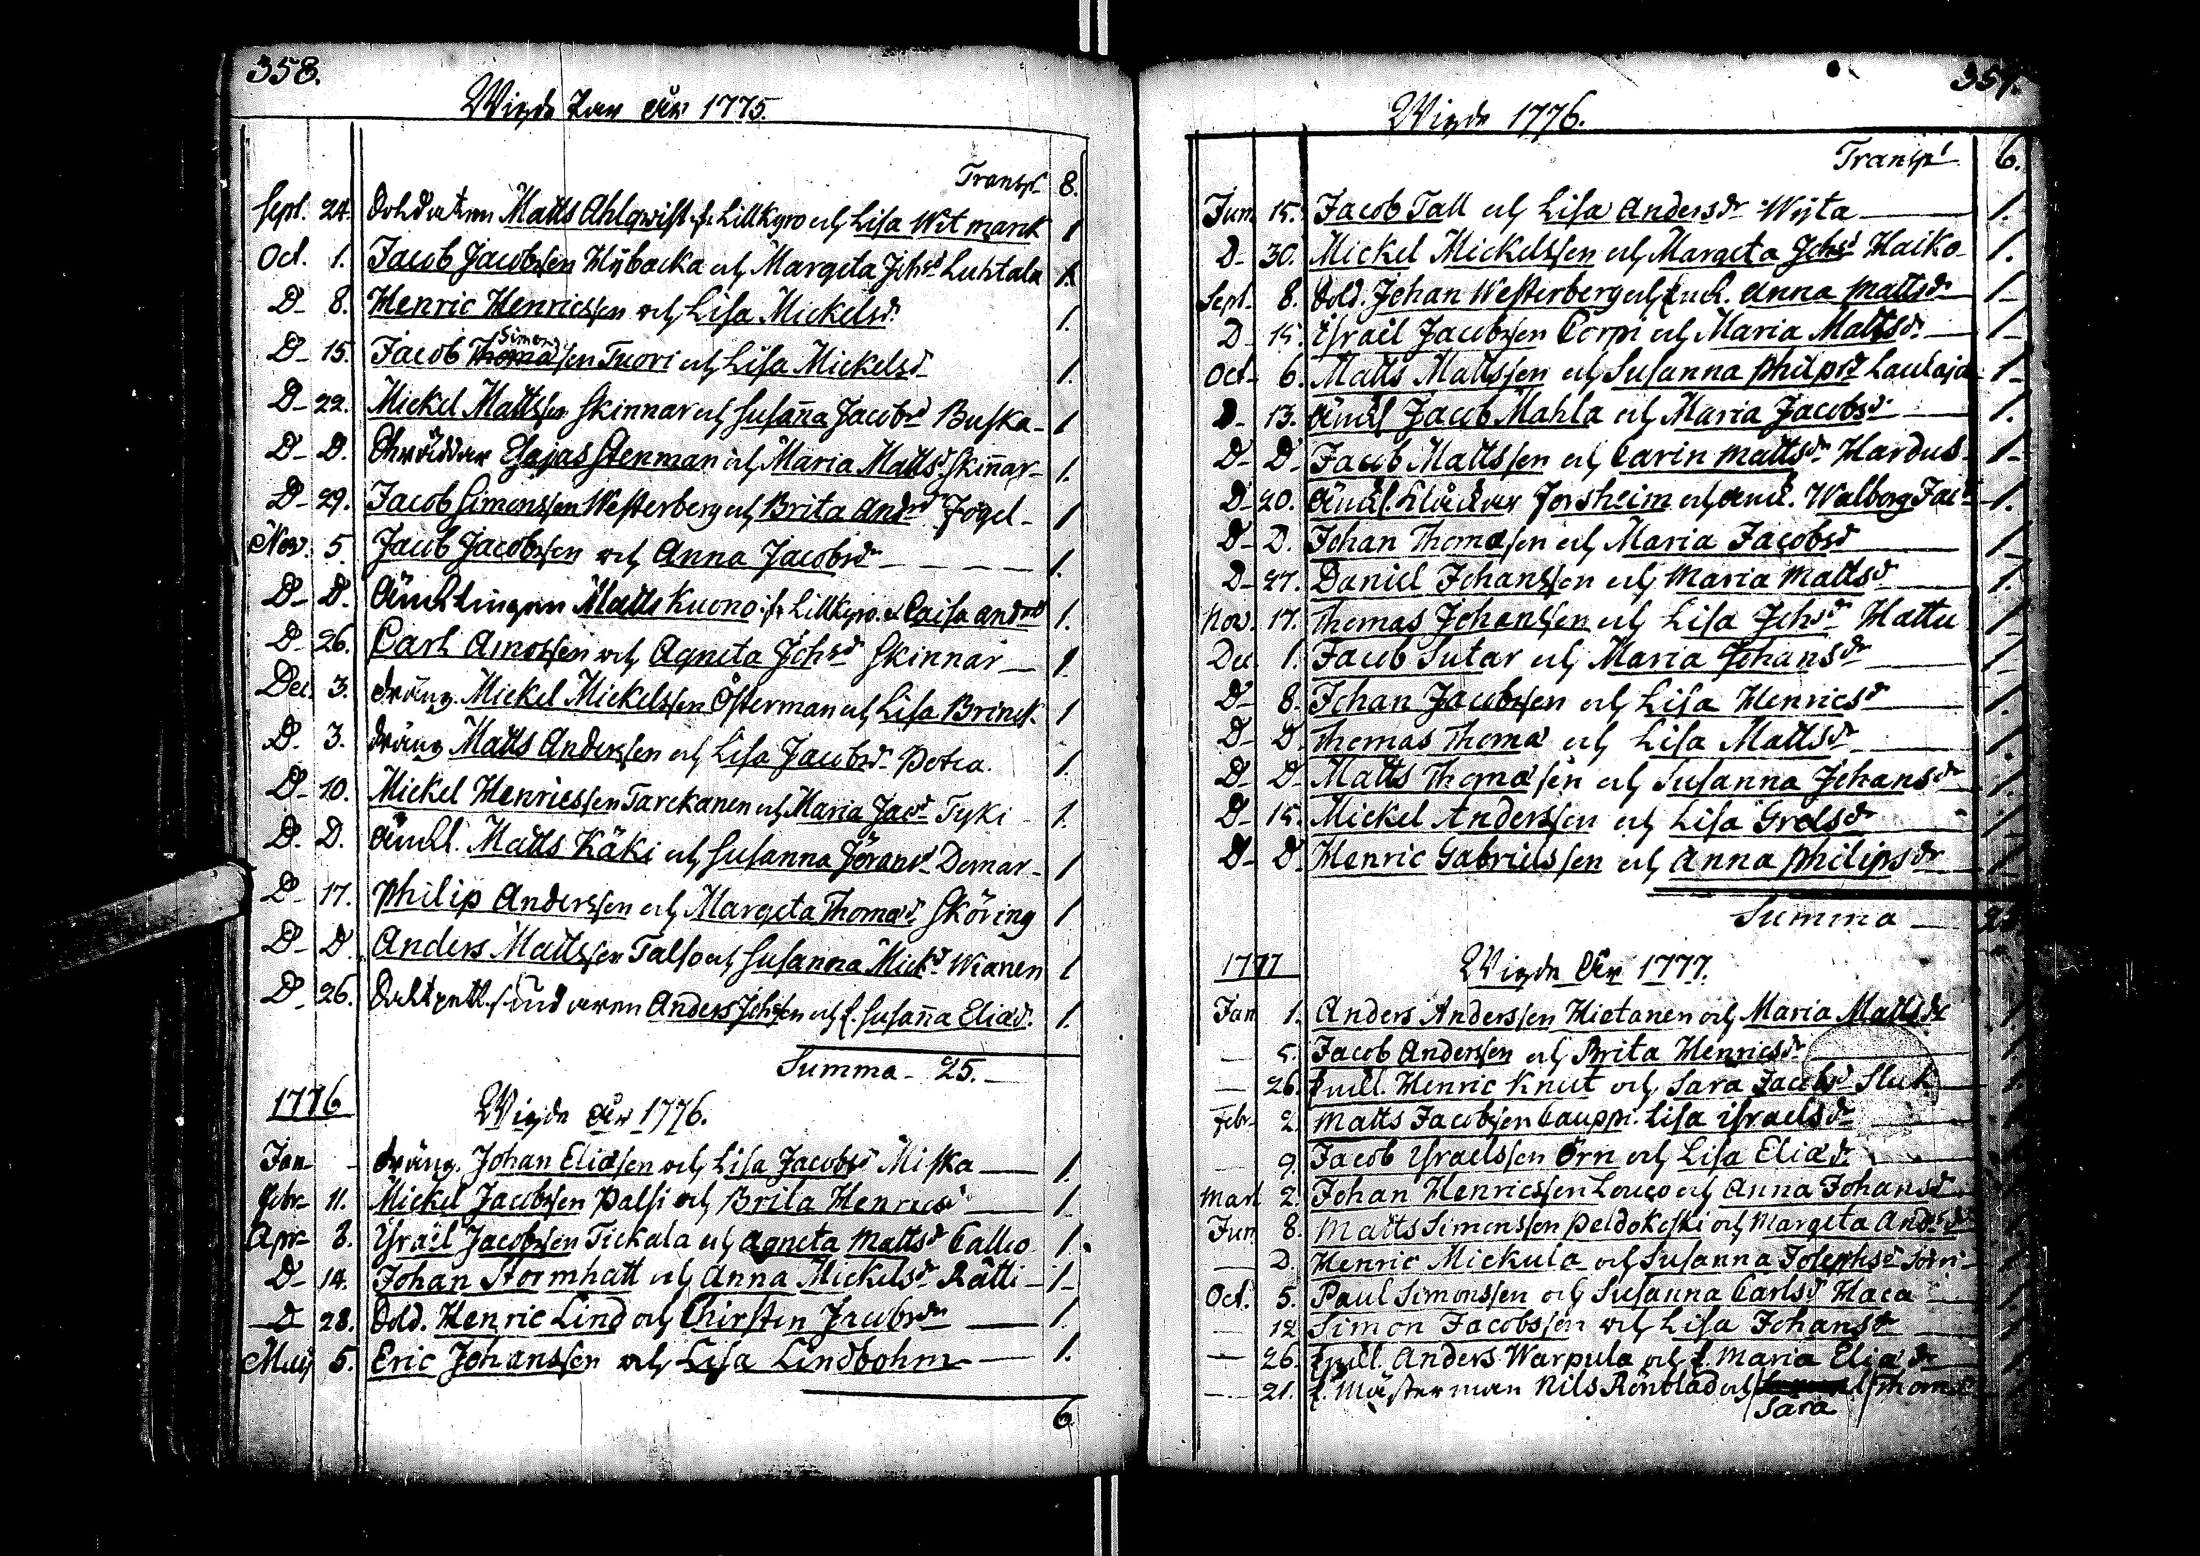 358.
Wigde Par År 1775.
Transpt 8.
Sept. 24. Soldaten Matts Ahlqwist fr. Lillkyro och Lisa Witmarck 1
Oct. 1. Jacob Jacobssen Nybacka och Margeta Johsdr Luhtala 1.
D- 8. Henric Henricssen och Lisa Mickelsdr 1.
Simon
D- 15. Jacob Thomasen Tuori och Lisa Mickelsdr 1.
D- 22. Mickel Mattssen Skinnar och Susanna Jacobsdr Buska- 1
D- D. Skräddar Esajas Stenman och Maria Mattsdr Skinnar- 1.
D- 29. Jacob Simonssen Westerberg och Brita Andsdr Fogel- 1
Nov. 5 Jacob Jacobssen och Anna Jacobsdr - - - - 1.
D- D. Änklingen Matts Kuono fr Lillkyro. & Caisa Andrsdr 1.
D- 26. Carl Amossen och Agneta Johsdr Skinnar 1
Dec. 3. Dräng. Mickel Mickelssen Österman och Lisa Brinck 1
D. 3. Dräng Matts Anderssen och Lisa Jacobsdr Potea. 1.
D- 10. Mickel Henricssen Tarckanen och Maria Jacdr Tyki 1.
D. D. Änckl. Matts Käki och Susanna Jöransdr Domar- 1
D- 17. Philip Anderssen och Margeta Thomasdr Sköring 1
D- D. Anders Mattssen Talso och Susanna Micksdr Wianen 1
D- 26. Saltpett. siudaren Anders Johssen och P. Susanna Eliadr. 1.
Summa - 25.
1776 Wigde År 1776.
Jan - Dräng. Johan Eliasen och Lisa Jacobsdr Miska 1.
Febr 11. Mickel Jacobssen Palsi och Brita Henricsdr 1.
Apr 8. Israël Jacobssen Tickala och Agneta Mattsdr Calleo 1.
D- 14. Johan Stormhatt och Anna Mickelsdr Rätti 1
D 28. Sold. Henric Lind och Chirstin Jacobsdr 1.
Maij 5. Eric Johanssen och Lisa Lindbohm 1.
6
Wigde 1776.
Transpt 6.
Jun 15. Jacob Tall och Lisa Andersdr Wijta 1.
D- 30. Mickel Mickelssen och Margeta Johsdr Haiko 1.
Sept. 8. Sold. Johan Westerberg och Enck. Anna Mattsdr 1
D 15. Israël Jacobssen Corpi och Maria Mattsdr 1
Oct- 6. Matts Mattssen och Susanna Philpsdr Laulaja 1
D- 13. Änckl Jacob Mahla och Maria Jacobsdr 1.
D- D- Jacob Mattssen och Carin Mattsdr Hardus 1
D- 20. Änckl. Klåckar Forsheim och Enck. Walborg Jacdr 1.
D- D. Johan Thomasen och Maria Jacobsdr 1
D- 27. Daniel Johanssen och Maria Mattsdr 1.
Nov. 17. Thomas Johanssen och Lisa Johsdr Hattu 1
Dec 1. Jacob Sutar och Maria Johansdr 1
D- 8. Johan Jacobssen och Lisa Henricsdr 1.
D- D Thomas Thoma och Lisa Mattsdr 1.
D- D Matts Thomasen och Susanna Johansdr 1
D- 15. Mickel Anderssen och Lisa Grelsdr 1
D- D Henric Gabrielssen och Anna Philipsdr 1
Summa
1777 Wigde År 1777.
Jan 1. Anders Anderssen Hietanen och Maria Mattsdr 1
5. Jacob Anderssen och Brita Henricsdr 1
26. Enckl. Henric Knut och Sara Jacobsdr Sluk 1
Febr 2. Matts Jacobssen Cauppi. Lisa Israelsdr
9 Jacob Israelssen Örn och Lisa Eliadr
Mart 2 Johan Henricssen Louco och Anna Johansdr
Jun 8. Matts Simonssen Peldokoski och Margeta Andrsdr 1
D. Henric Mickula och Susanna Josephsdr Sorri 1
Oct. 5. Paul Simonssen och Susanna Carlsdr Haca 1.
12 Simon Jacobssen och Lisa Johansdr 1
26. Enckl. Anders Warpula och P. Maria Eliadr 1
21. Mästerman Nils Röntlad och Thomsdr
Sara